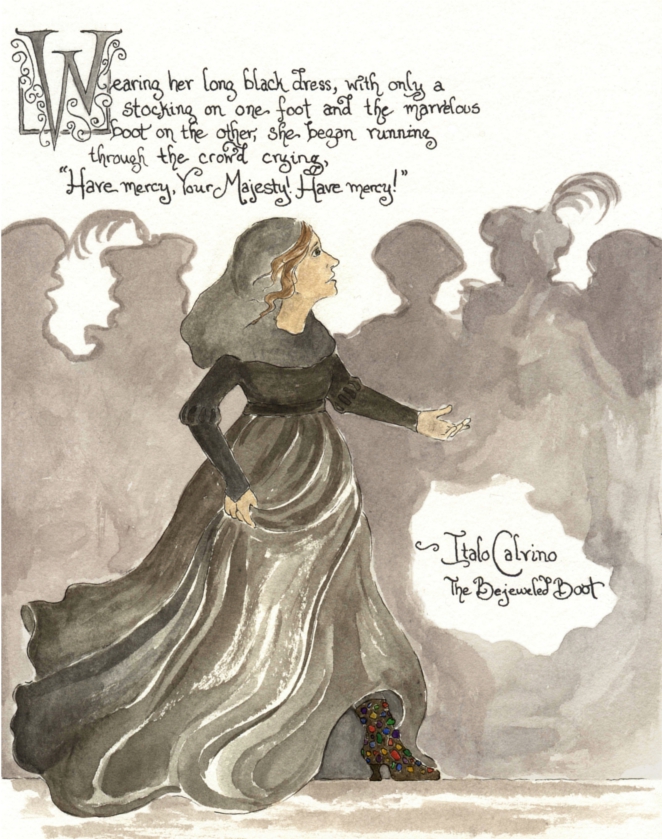 Wearing her long black dress, with only a
stocking on one foot and the marvelous
boot on the other, she began running
through the crowd crying,
"Have mercy, Your Majesty! Have mercy!"
~ Italo Calvino
The Bejeweled Boot